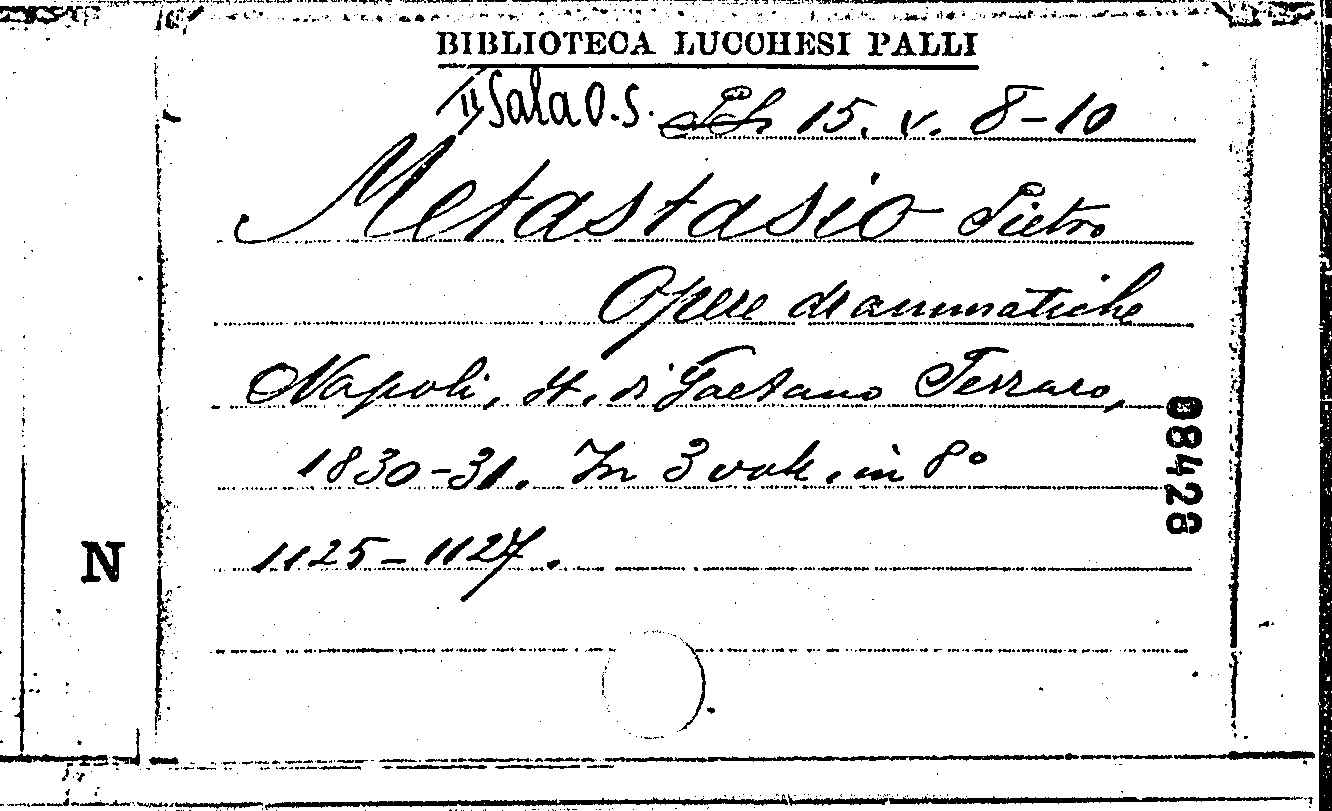 BIBLIOTECA LUCCHESI PALLI
II Sala O.S. 15. v. 8-10
Metastasio Pietro
Opere drammatiche
Napoli, St. di Gaetano Ferraro,
1830-31. In 3 voll. in 8°
1125-1127.
N
08426